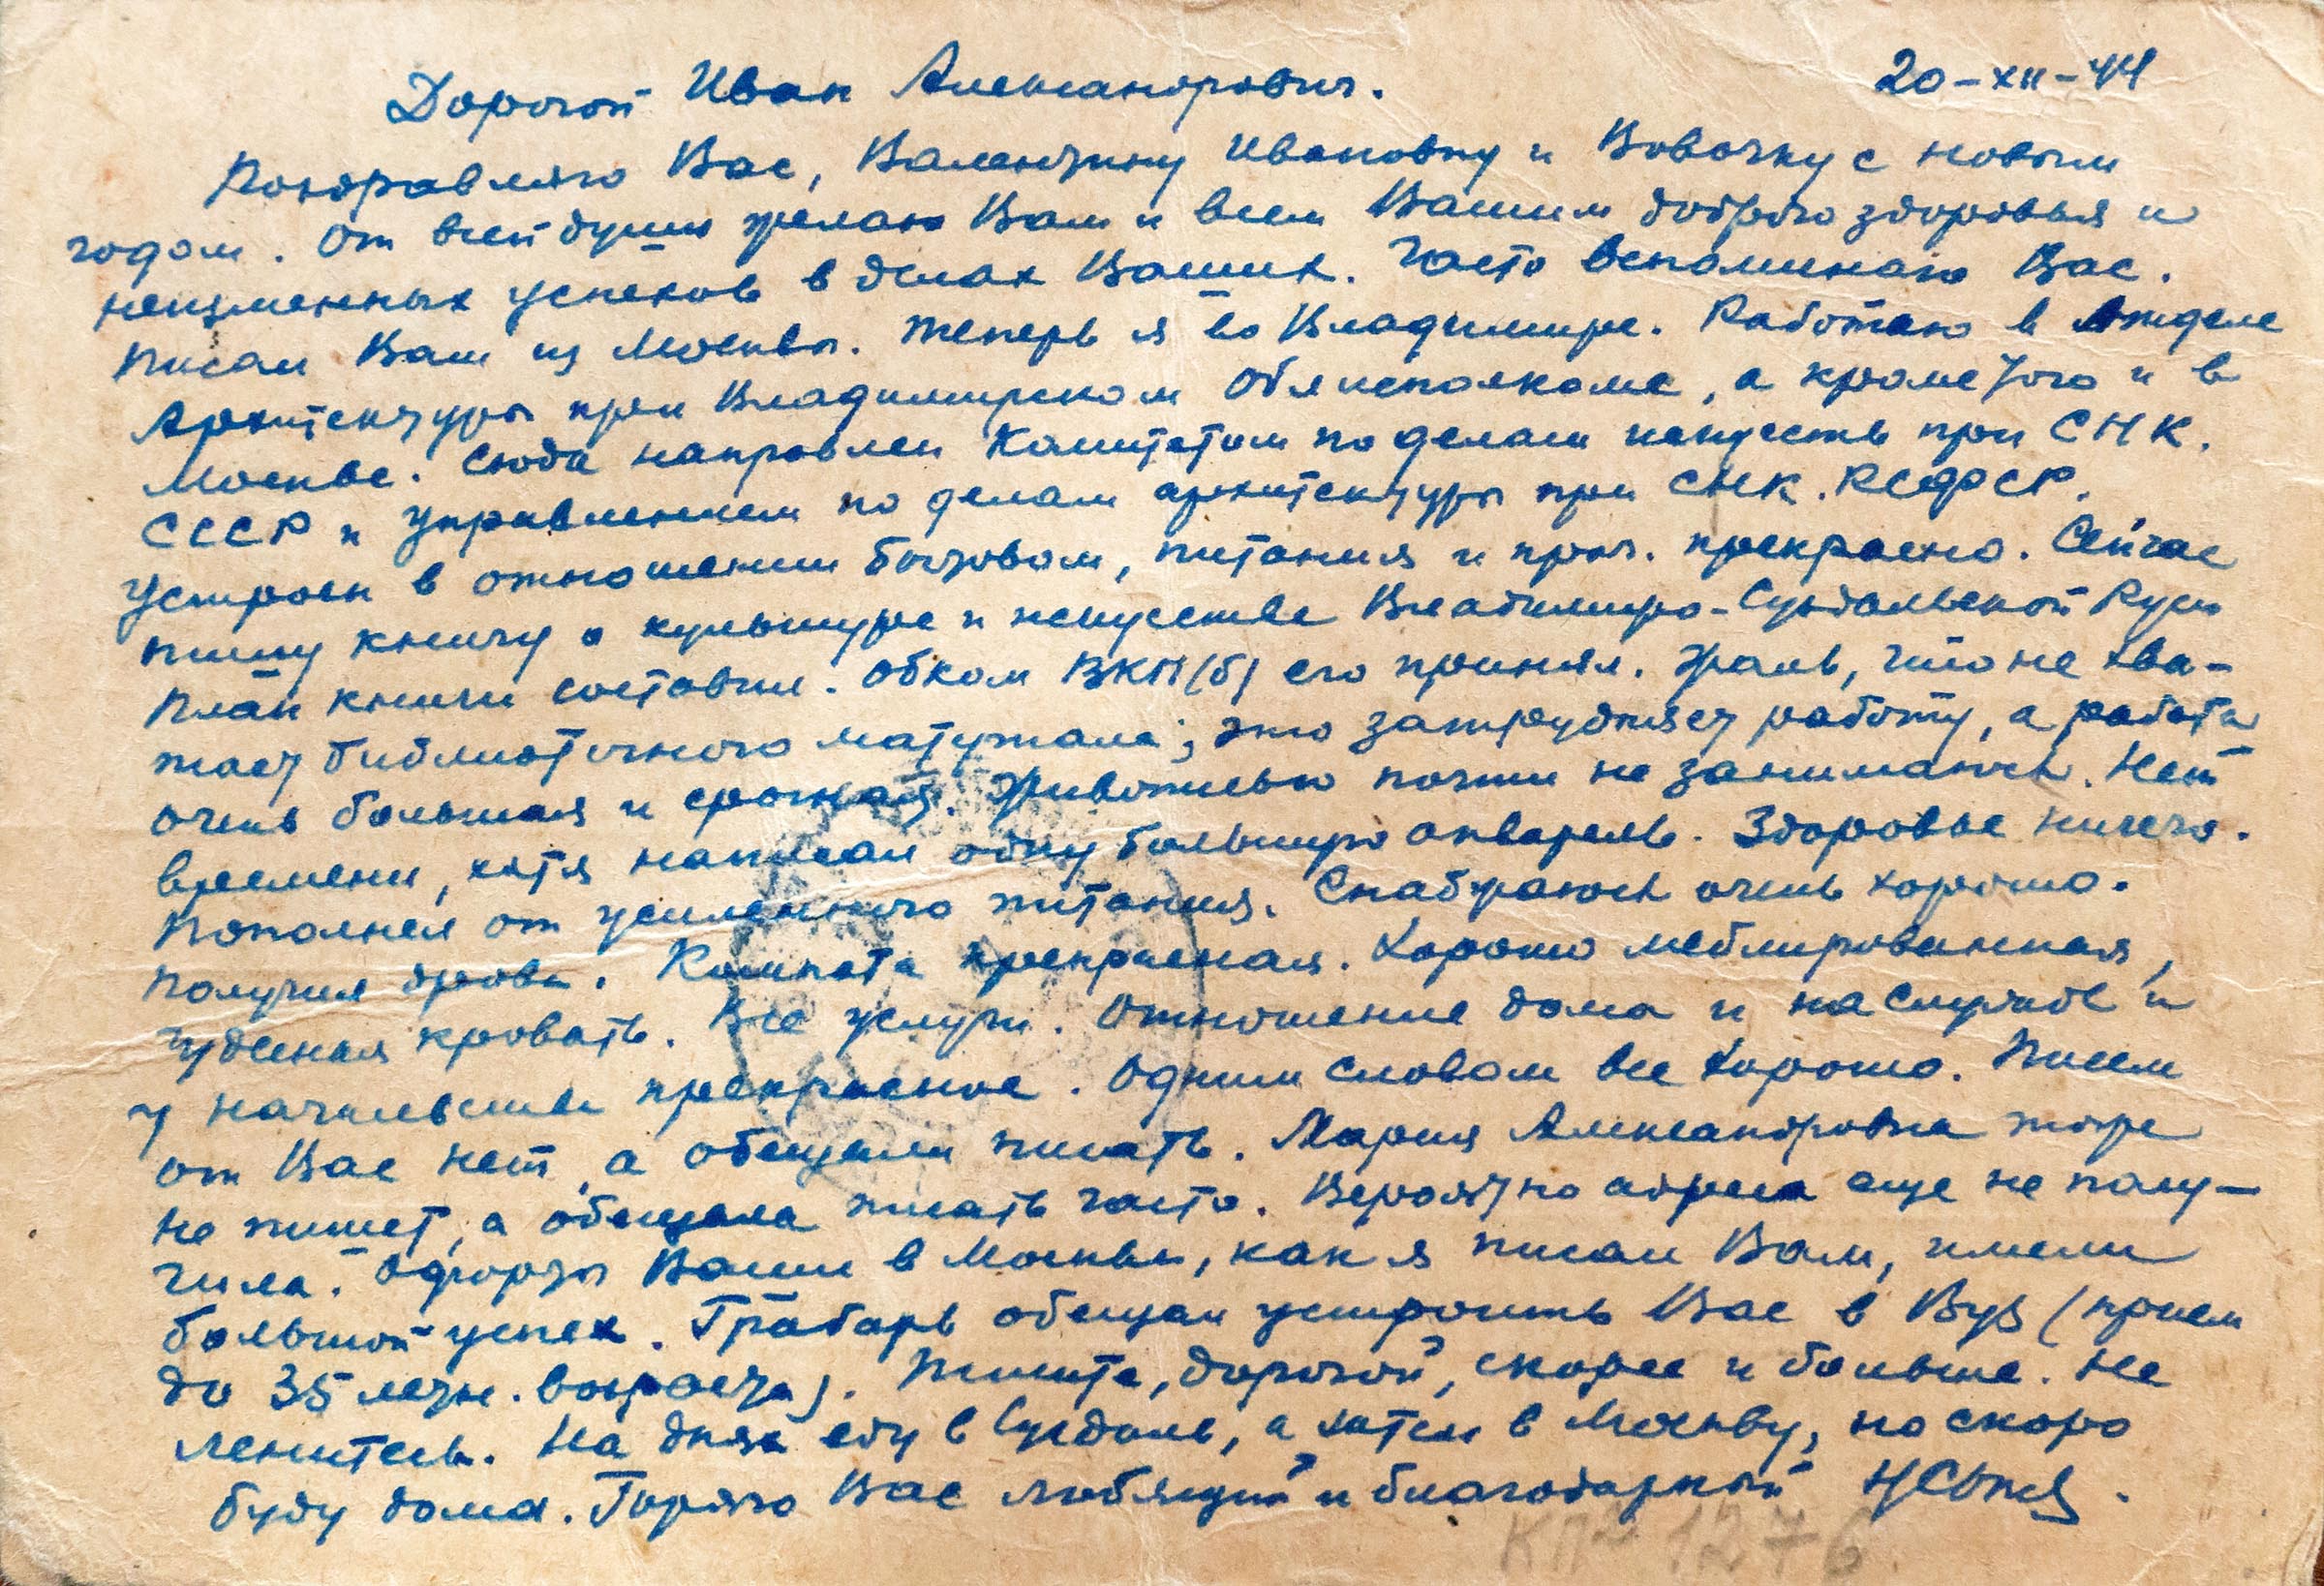 Дорогой Иван Александрович. 20-XII-44
Поздравляю Вас, Валентину Ивановну и Вовочку с новым
годом. От всей души желаю Вам и всем Вашим доброго здоровья и
неизменных успехов в делах Ваших. Часто вспоминаю Вас.
Писал Вам из Москвы. Теперь я во Владимире. Работаю в Отделе
Архитектуры при Владимирском Облисполкоме, а кроме того и в
Москве. Сюда направлен Комитетом по делам искусств при СНК.
СССР и Управлением по делам архитектуры при СНК. РСФСР.
Устроен в отношении бытовом, питания и проч. прекрасно. Сейчас
пишу книгу о культуре и искусстве Владимиро-Суздальской Руси
План книги составил. Обком ВКП(б) его принял. Жаль, что не хва-
тает библиотечного материала; это затрудняет работу, а работа
очень большая и срочная. Живописью почти не занимаюсь. Нет
времени, хотя написал одну большую акварель. Здоровье ничего.
Пополнел от усиленного питания. Снабжаюсь очень хорошо.
Получил дрова. Комната прекрасная. Хорошо меблированная,
чудесная кровать. Все услуги. Отношение дома и на службе и
у начальства прекрасное. Одним словом все хорошо. Писем
от Вас нет, а обещали писать. Мария Александровна тоже
не пишет, а обещала писать часто. Вероятно адреса еще не полу-
чила. Офорты Ваши в Москве, как я писал Вам, имели
большой успех. Грабарь обещал устроить Вас в Вуз (прием
до 35 летн. возраста). Пишите, дорогой, скорее и больше. Не
ленитесь. На днях еду в Суздаль, а затем в Москву, но скоро
буду дома. Горячо Вас любящий и благодарный
КП 1276